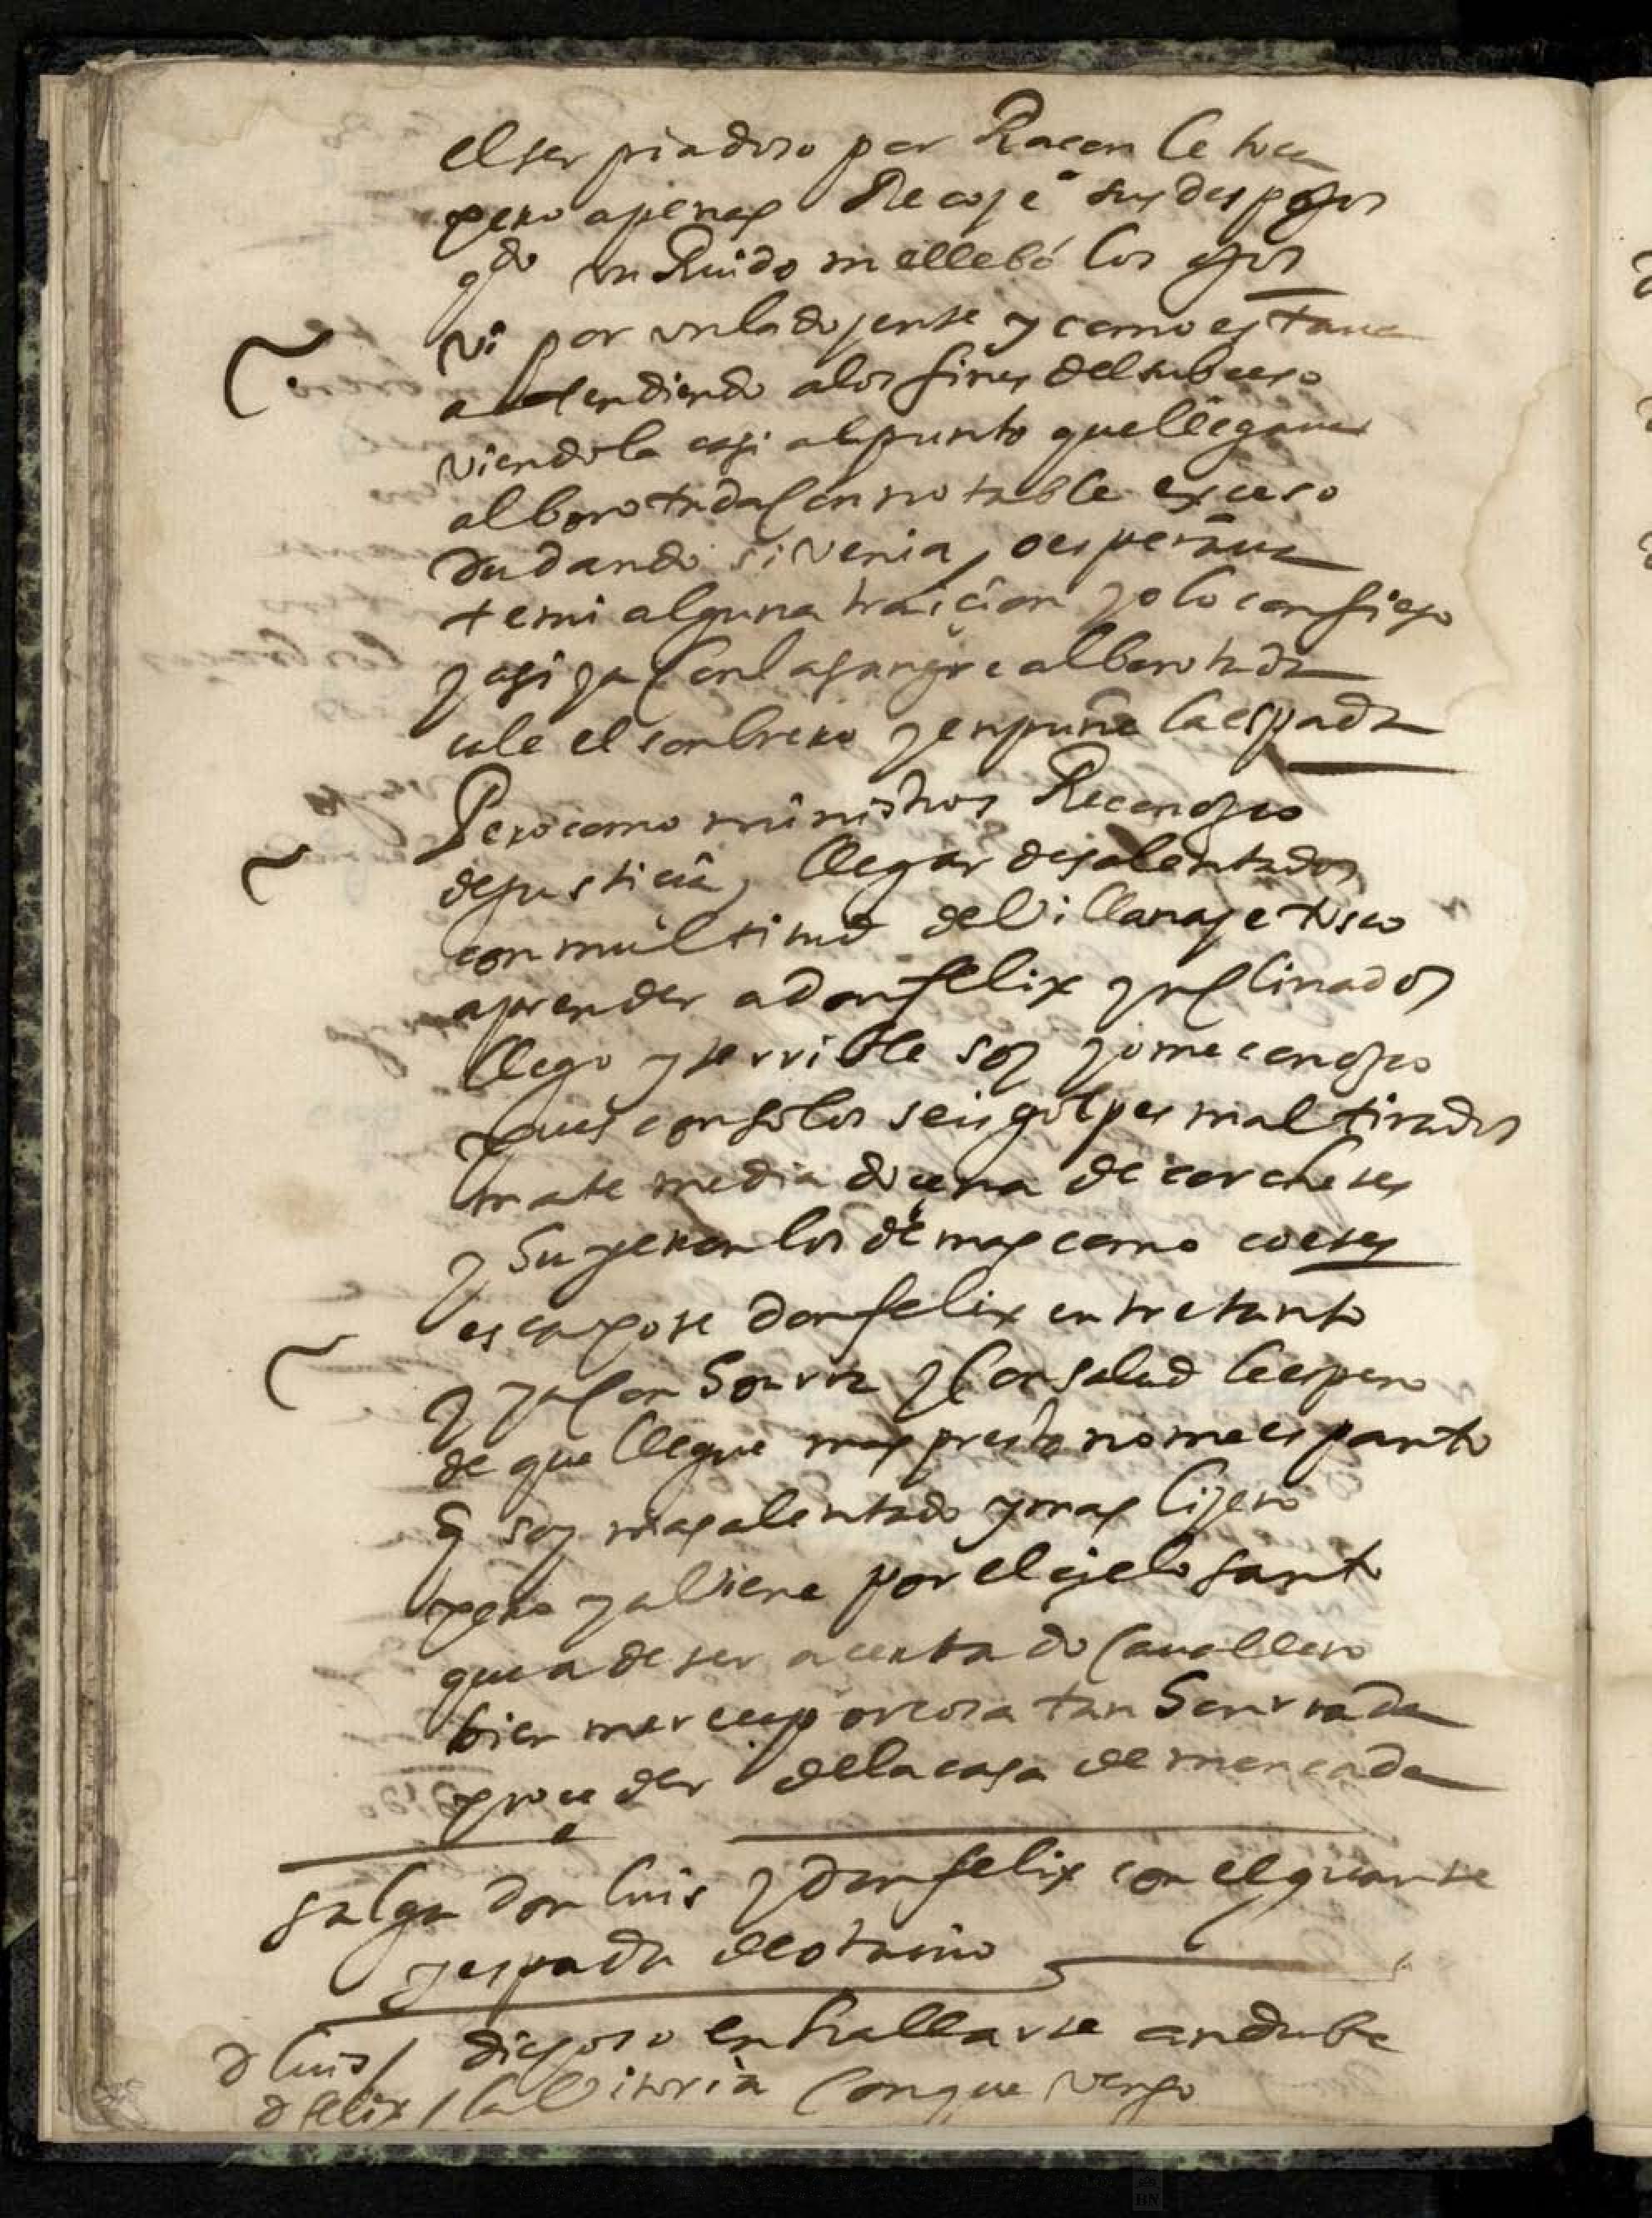 el ser piadoso por Racon le toca
pero apenas Recoje sus despojos
qdo vn Ruido me llebó los ojos
vi por vn lado jente y como estaua
atendiendo a los fines del subceso
viendola casi al punto que llegaua
alborotada con notable exceso
dudando si venia, o esperaua
temi alguna traiçion yo lo confieso
y asi ya con la sangre alborotada
cale el sonbrero y enpuñe la espada
Pero como ministros Reconozco
de justicia, llegar desalentados
con multitud del villanaje tosco
a prender a don felix ynclinados
llego y terrible soy yo me conozco
pues con solos seis golpes mal tirados
mate media doçena de corchetes
y huyeron los demas como coetes
escapose don felix entretanto
y ya con honrra y con salud le espero
de que llegue mas presto no me espanto
q soy mas alentado y mas lijero
pero ya viene por el çielo santo
que a de ser açertado cauallero
bien mereçe por cosa tan honrrada
proceder de la casa de moncada
salga don luis y don felix con el guante
y espada de otauio
d luis / dichoso en hallarse andube
d felix / la vitoria con que vengo